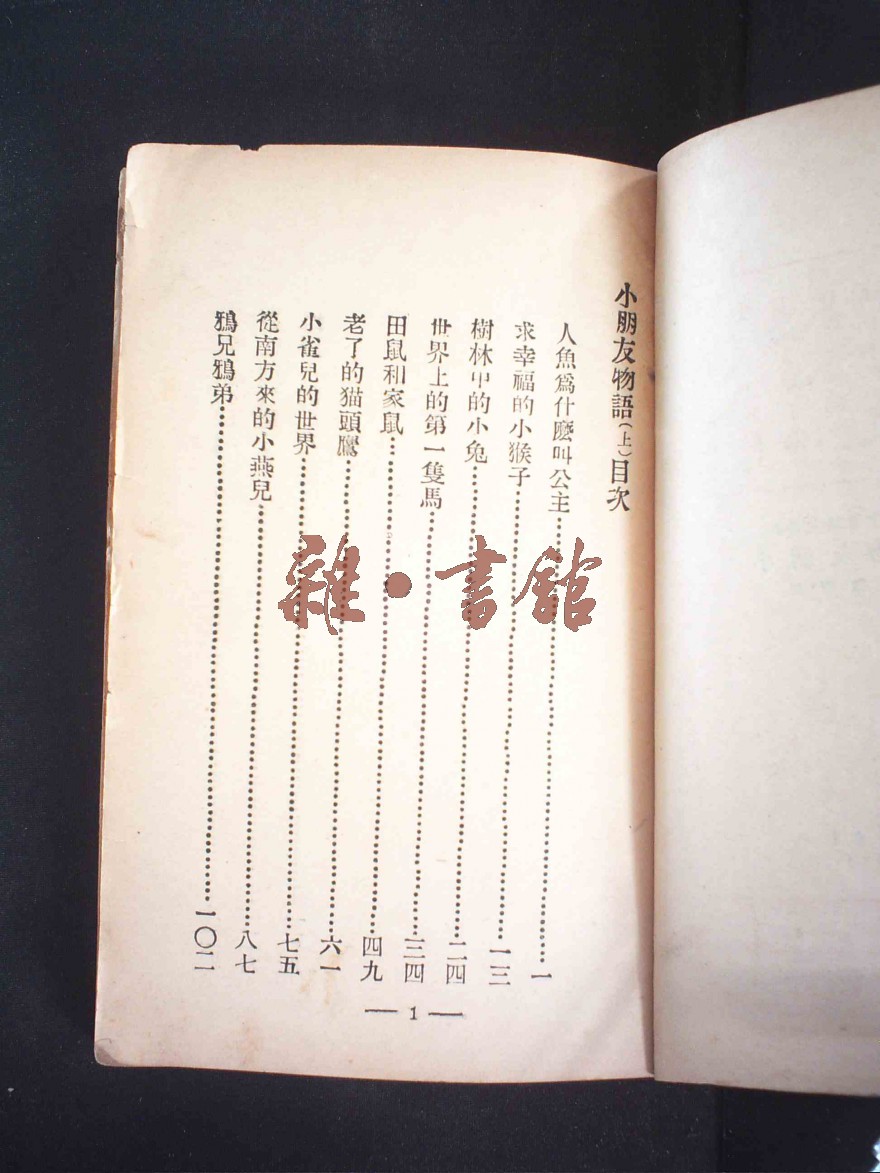 小朋友物語(上)目次
人魚爲什麽叫公主……一
求幸福的小猴子……一三
樹林中的小兔……二四
世界上的第一隻馬……三四
田鼠和家鼠……四九
老了的猫頭鷹……六一
小雀兒的世界……七五
從南方來的小燕兒……八七
鴉兄鴉弟……一〇二
— 1 —
雜·書館